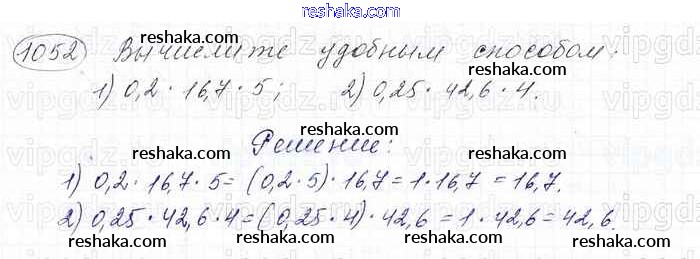 reshaka.com
1052 Вычислите удобным способом:
reshaka.com reshaka.com
1) 0,2 · 16,7 · 5; 2) 0,25 · 42,6 · 4.
vipgdz.ru vipgdz.ru vipgdz.ru vipgdz.ru
reshaka.com
Решение:
reshaka.com reshaka.com
1) 0,2 · 16,7 · 5 = (0,2 · 5) · 16,7 = 1 · 16,7 = 16,7.
2) 0,25 · 42,6 · 4 = (0,25 · 4) · 42,6 = 1 · 42,6 = 42,6.
reshaka.com reshaka.com reshaka.com
reshaka.com